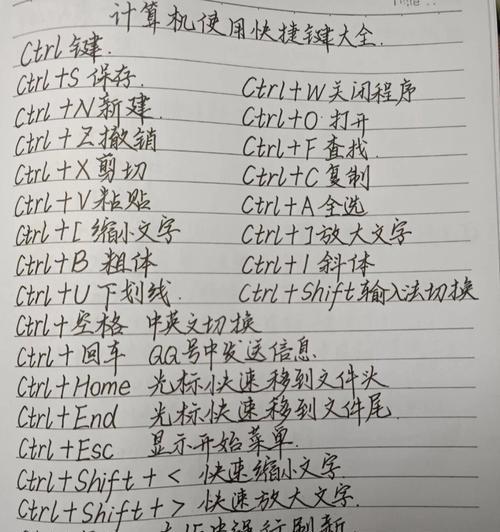 计算机使用快捷键大全.
Ctrl键.
Ctrl+S 保存. Ctrl+W关闭程序
Ctrl+N新建. Ctrl+O 打开
Ctrl+Z撤销 Ctrl+F 查找.
Ctrl+X剪切 Ctrl+C复制
Ctrl+V粘贴 Ctrl+A 全选
Ctrl+[ 缩小文字 Ctrl+]放大文字
Ctrl+B 粗体 Ctrl+I 斜体
Ctrl+U下划线. Ctrl+Shift输入法切换
Ctrl+空格 中英文切换
Ctrl+回车 QQ号中发送信息.
Ctrl+Home 光标快速移到文件头
Ctrl+End 光标快速移到文件尾.
Ctrl+Esc 显示开始菜单.
Ctrl+Shift+< 快速缩小文字
Ctrl+Shift+> 快速放大文字.